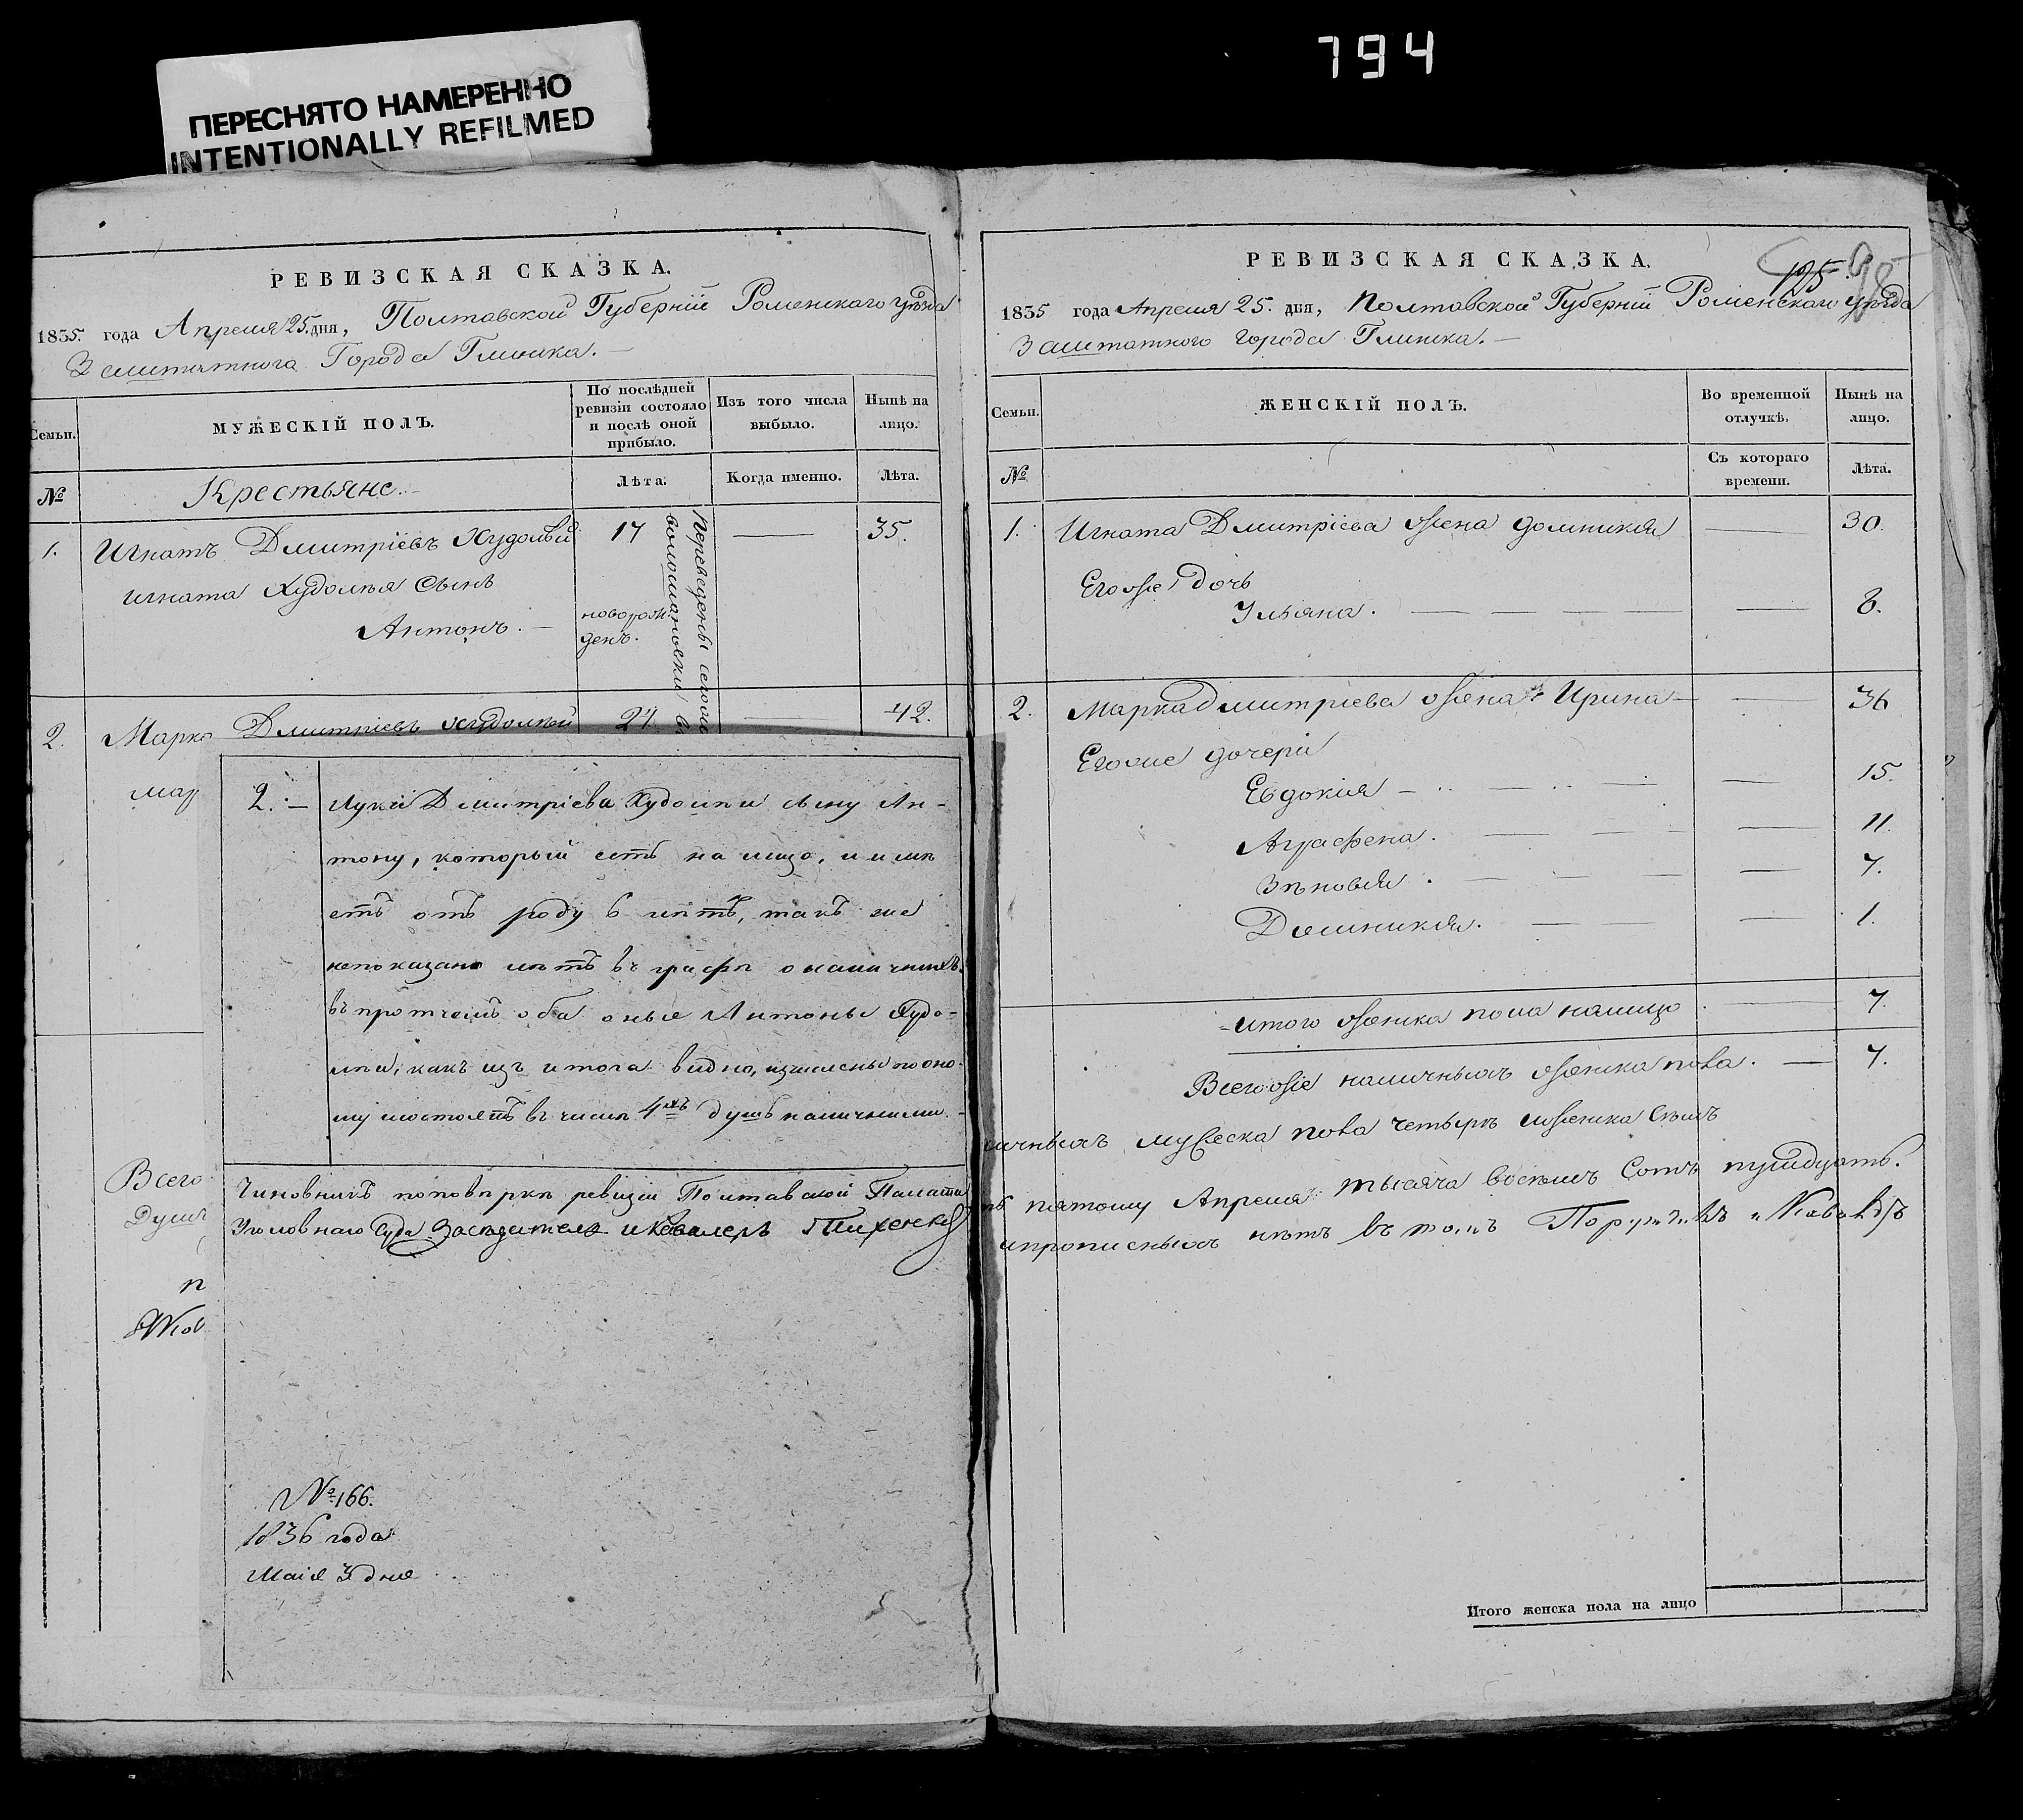 794
ПЕРЕСНЯТО НАМЕРЕННО
INTENTIONALLY REFILMED
РЕВИЗСКАЯ СКАЗКА.
1835. года Апреля 25. дня, Полтавской Губерніи Роменскаго уѣзда
Заштатнога Города Глинска.
Семьи.
МУЖЕСКІЙ ПОЛЪ.
По послѣдней ревизіи состояло и послѣ оной прибыло.
Изъ того числа выбыло.
Нынѣ на лицо.
№
Крестьяне.
Лѣта.
Когда именно.
Лѣта.
1. Игнатъ Дмитріевъ Худолѣй 17 — 35.
Игната Худолѣя Сынъ
Антонъ. — новорож-
денъ.
Переведены
2. Марко Дмитріевъ Худолѣй 24 — 42.
мар
2. — Луки Дмитріева Худолѣи сыну Ан-
тону, который есть на лицо, и имѣ
етъ отъ роду 6 лѣтъ, такъ же
непоказано лѣтъ въ графѣ о наличныхъ.
въ протчемъ оба оные Антоны Худо-
лѣи, какъ изъ итога видно, изчислены по оно-
му и состоятъ въ числѣ 4хъ душъ наличными.
Чиновникъ поповѣркѣ ревизіи Полтавской Палаты
Уголовнаго Суда Засѣдатель и Кавалеръ
№ 166.
1836 года
Маія 3 дня
Всего
Душъ
п
РЕВИЗСКАЯ СКАЗКА.
195
1835 года Апреля 25. дня, Полтавской Губерніи Роменскаго уѣзда
Заштатного города Глинска. —
Семьи.
ЖЕНСКІЙ ПОЛЪ.
Во временной отлучкѣ.
Нынѣ на лицо.
№
Съ котораго времени.
Лѣта.
1. Игната Дмитріева жена Домникія — 30.
Егоже дочь
Ульяна. — 8.
2. Марка Дмитріева жена Ирина — 36
Егоже дочери
Евдокія — 15.
Аграфена. — 11.
Зѣновія. — 7.
Домникія. — 1.
итого женска пола налицо — 7.
Всегоже наличныхъ женска пола. — 7.
личныхъ мужеска пола четырѣ и женска Семъ
пятому Апреля тысяча восемъ Сотъ
и прописныхъ нѣтъ въ томъ
Итого женска пола на лицо